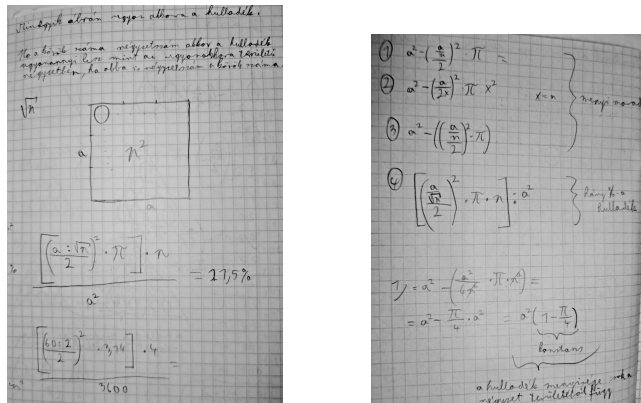 ábrán ugyan akkora a hulladék.
Ha a körök száma négyzetszám akkor a hulladék
ugyanannyi lesz mint az ugyanakkora területű
négyzetben, ha abba is négyzetszám a körök száma
√n
a
n²
a
[((a : √n)/2)² · π] · n
= 21,5%
a²
[((60 : 2)/2)² · 3,14] · 4
=
3600
① a² - ((a/n)/2)² · π =
② a² - (a/2x)² π x²
x = n
③ a² - (((a/n)/2)² · π)
④ [((a/√n)/2)² · π · n] : a²
hány %-a
hulladék
1) = a² - (a²/4n · π · n) =
= a² - π/4 · a² = a² (1 - π/4)
konstans
a hulladék mennyisége csak a
négyzet területétől függ